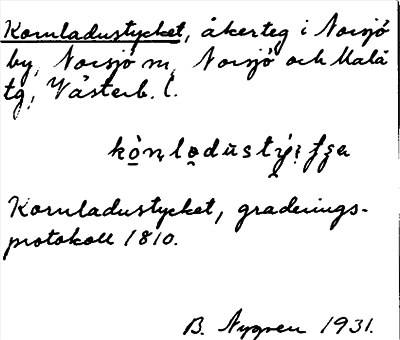 Kornladustycket, åkerteg i Norsjö
by, Norsjö sn, Norsjö och Malå
tg, Västerb. l.
Kornladustycket, graderings-
protokoll 1810.
B. Nygren 1931.